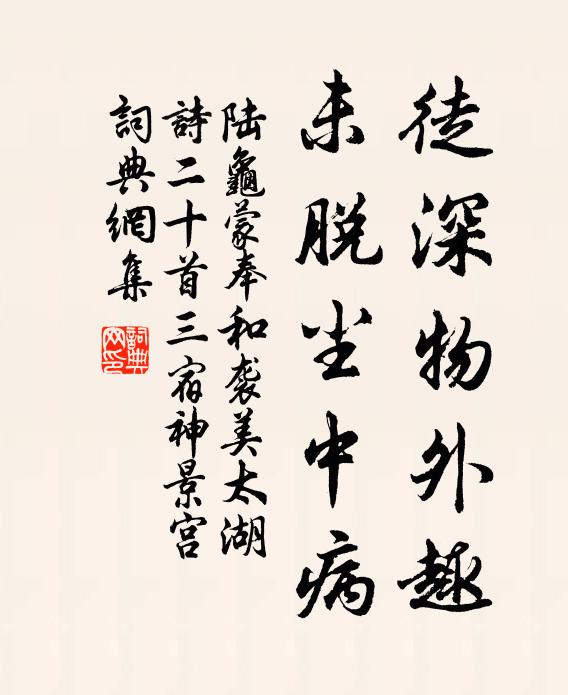 徒深物外趣
未脫尘中病
陆龜蒙奉和袭美太湖
詩二十首三宿神景宫
詞典網集
詞典网印